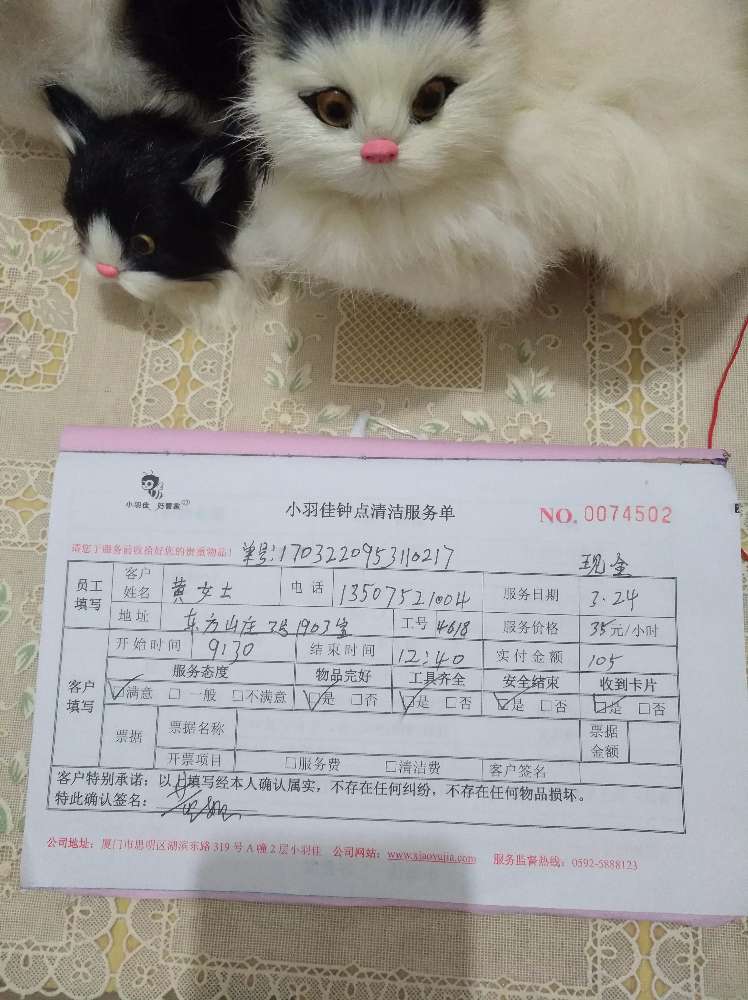 小羽佳 好管家
小羽佳钟点清洁服务单
NO. 0074502
请您于服务前收拾好您的贵重物品！ 单号:1703220953110217 现金
员工填写 客户姓名 黄女士 电话 13507521004 服务日期 3.24
地址 东方山庄2号1903室 工号 4618 服务价格 35元/小时
客户填写 开始时间 9:30 结束时间 12:40 实付金额 105
服务态度 物品完好 工具齐全 安全结束 收到卡片
☑满意 □一般 □不满意 ☑是 □否 ☑是 □否 ☑是 □否 ☑是 □否
票据 票据名称 票据金额
开票项目 □服务费 □清洁费 客户签名
客户特别承诺：以上填写经本人确认属实，不存在任何纠纷，不存在任何物品损坏。
特此确认签名：
公司地址：厦门市思明区湖滨东路319号A幢2层小羽佳 公司网站：www.xiaoyujia.com 服务监督热线：0592-5888123